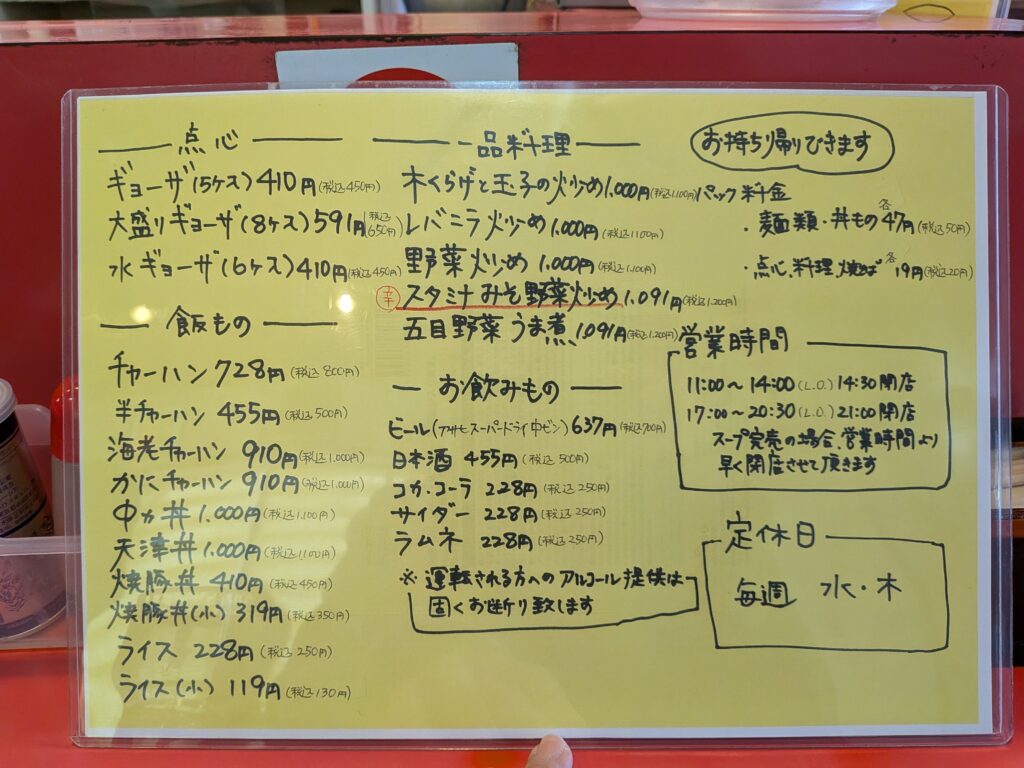 点心
ギョーザ(5ケス)410円(税込450円)
大盛りギョーザ(8ケス)591円(税込650円)
水ギョーザ(6ケス)410円(税込450円)
飯もの
チャーハン 728円(税込800円)
半チャーハン 455円(税込500円)
海老チャーハン 910円(税込1.000円)
かにチャーハン 910円(税込1.000円)
中カ丼 1.000円(税込1.100円)
天津丼 1.000円(税込1.100円)
焼豚丼 410円(税込450円)
焼豚丼(小) 319円(税込350円)
ライス 228円(税込250円)
ライス(小) 119円(税込130円)
一品料理
木くらげと玉子の炒め1.000円(税込1.100円)
レバニラ炒め 1.000円(税込1100円)
野菜炒め 1.000円(税込1.100円)
辛 スタミナみそ野菜炒め 1.091円(税込1.200円)
五目野菜うま煮 1.091円(税込1.200円)
お飲みもの
ビール(アサヒスーパードライ中ビン)637円(税込700円)
日本酒 455円(税込500円)
コカ・コーラ 228円(税込250円)
サイダー 228円(税込250円)
ラムネ 228円(税込250円)
※ 運転される方へのアルコール提供は
固くお断り致します
お持ち帰りできます
パック料金
・麺類・丼もの各47円(税込50円)
・点心、料理、焼そば各19円(税込20円)
営業時間
11:00〜14:00(L.O.)14:30閉店
17:00〜20:30(L.O.)21:00閉店
スープ完売の場合、営業時間より
早く閉店させて頂きます
定休日
毎週 水・木